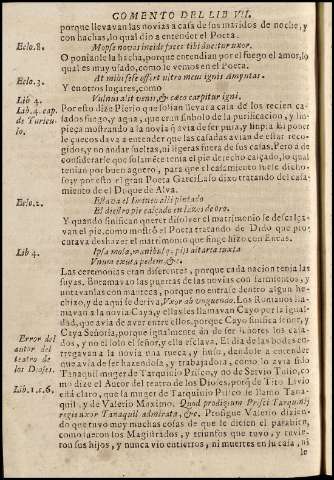 COMENTO DEL LIB VII.
porque llevavan las novias a casa de los maridos de noche, y
con hachas, lo qual dio a entender el Poeta.
Eclo. 8.
Mopse novas incide faces tibi ducitur uxor.
O ponianle la hacha, porque entendian por el fuego el amor, lo
qual es muy usado, como le vemos en el Poeta.
Eclo. 3.
At mihi sese offert ultro meus ignis Amyntas.
Y en otros lugares, como
Lib 4.
Vulnus alit venis, & cæco carpitur igni.
Lib. 4. cap. de Turiculo.
Por esto dize Pierio que solian llevar a casa de los recien casados
fuego, y agua, que eran simbolo de la purificacion, y limpieça
mostrando a la novia q̃ avia de ser pura, y limpia: el poner
le çuecos dava a entender que las casadas avian de estar recogidos,
y no andar sueltas, ni ligeras fuera de sus casas. Pero a de
considerarse que solamẽte tenia el pie derecho calçado, lo qual
tenian por buen aguero, para que el casamiento fuese dichoso,
y por esto el gran Poeta GarciLaso dixo tratando del casamiento
de el Duque de Alva.
Eclo. 2.
Estava el Himeneo alli pintado
El diestro pie calçado en lazos de oro.
Y quando sinifican querer disolver el matrimonio le descalçavan
el pie, como mostrò el Poeta tratando de Dido que procurava
deshazer el matrimonio que finge hizo con Eneas.
Lib 4.
Ipsa mola, manibusq; pijs altaria iuxta
Vnum exuta pedem, &c.
Las ceremonias eran diferentes, porque cada nacion tenia las
suyas. Enramavan las puertas de las novias con
untavanlas con manteca, porque no entrase dentro algun hechizo,
y de aqui se deriva, Vxor ab unguendo. Los Romanos llamavan
a la novia Caya, y ellas les llamavan Cayo por la igualdad,
que avia de aver entre ellos, porque Cayo sinifica señor, y
Caya Señora, porque igualmente an de ser señores los casados,
y no el solo el señor, y ella esclava. El dia de las bodas entregavan
a la novia una rueca, y huso, dandole a entender
Error del autor del teatro de los Dioses.
que avia de ser hazendosa, y trabajadora, como lo avia sido
Tanaquil muger de Tarquinio Prisco, y no de Servio Tulio, como
dize el Autor del teatro de los Dioses, porq̃ de Tito Livio
Lib. 1. c 6.
està claro, que la muger de Tarquinio Prisco se llamo Tanaquil,
y de Valerio Maximo. Quod prodigium Prisci Tarquinij
regis uxor Tanaquil admirata, &c. Prosigue Valerio diziendo
que tuvo muy muchas cosas de que le dicten el parabien,
como fueron los Magistrados, y triunfos que tuvo, y tuvieron
sus hijos, y nunca vio entierros, ni muertes en su casa, ni
le